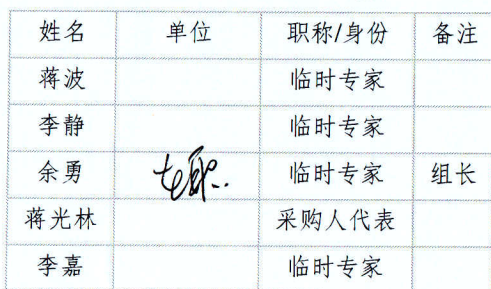 姓名 单位 职称/身份 备注
蒋波 临时专家
李静 临时专家
余勇 临时专家 组长
蒋光林 采购人代表
李嘉 临时专家